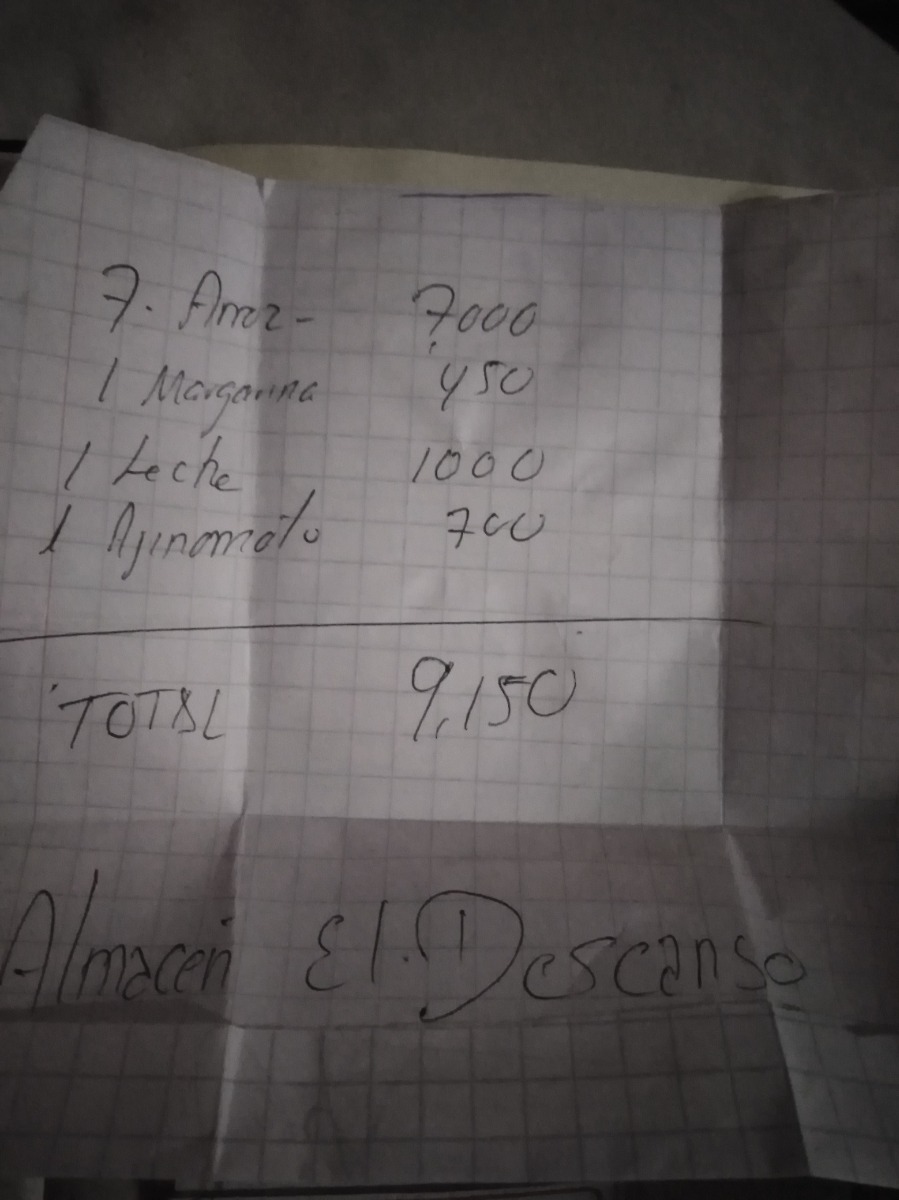 7. Arroz - 7,000
1 Margarina 450
1 Leche 1000
1 Ajinomoto 700
TOTAL 9,150
Almacen El. Descanso